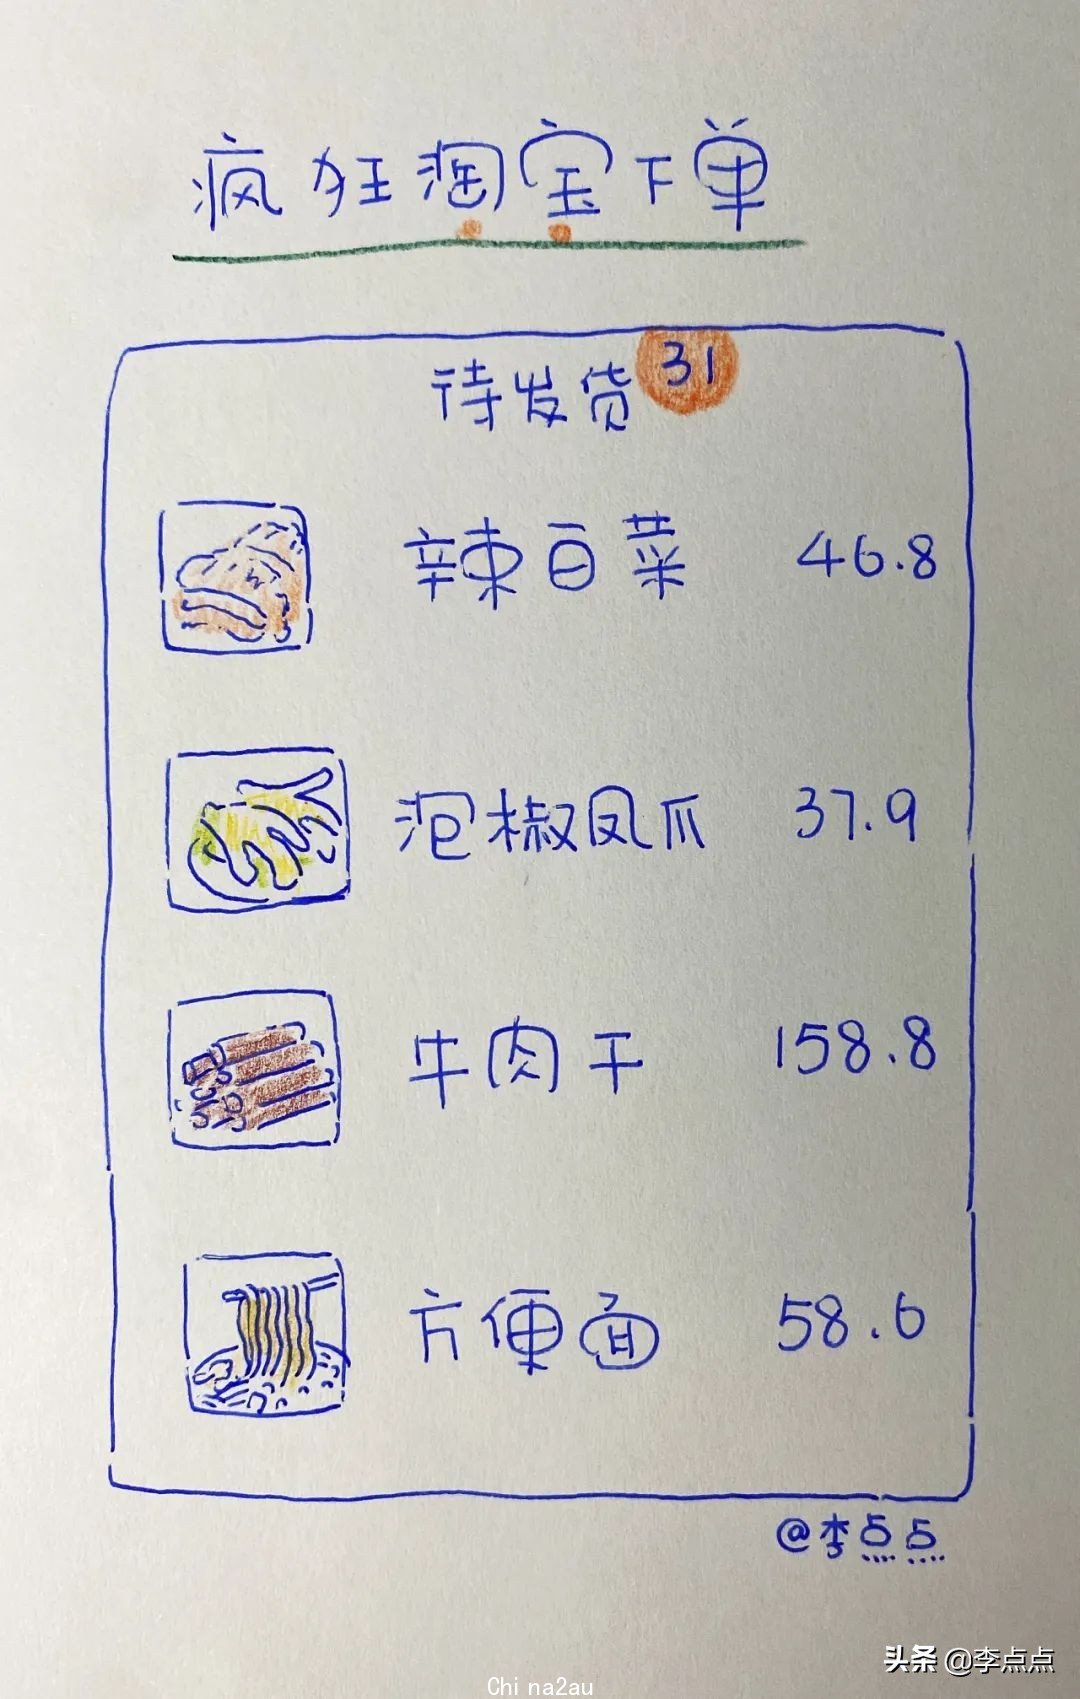 疯狂淘宝下单
待发货 31
辣白菜 46.8
泡椒凤爪 37.9
牛肉干 158.8
方便面 58.6
@李点点
头条 @李点点
China2au